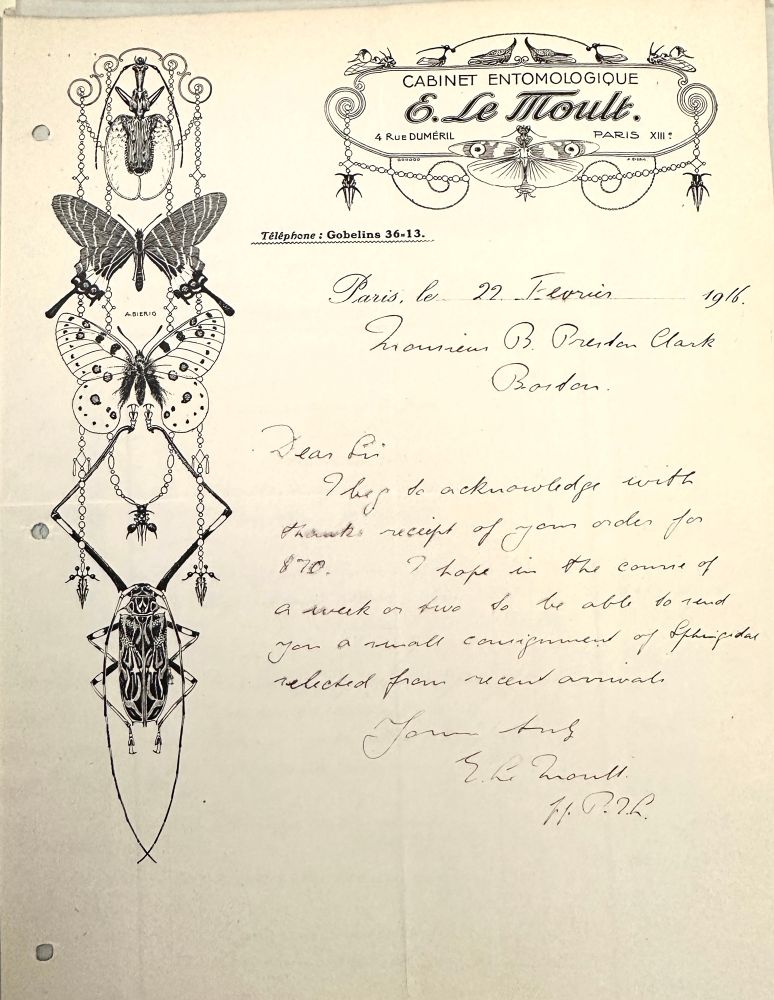 CABINET ENTOMOLOGIQUE
E. Le Moult.
4 RUE DUMÉRIL PARIS XIIIe
Téléphone : Gobelins 36-13.
A. BIERIG
Paris, le 22 Fevrier 1916.
Monsieur B. Preston Clark
Boston.
Dear Sir
I beg to acknowledge with
thanks receipt of your order for
$70. I hope in the course of
a week or two to be able to send
you a small consignment of Sphingidae
selected from recent arrivals
Yours truly
E. Le Moult.